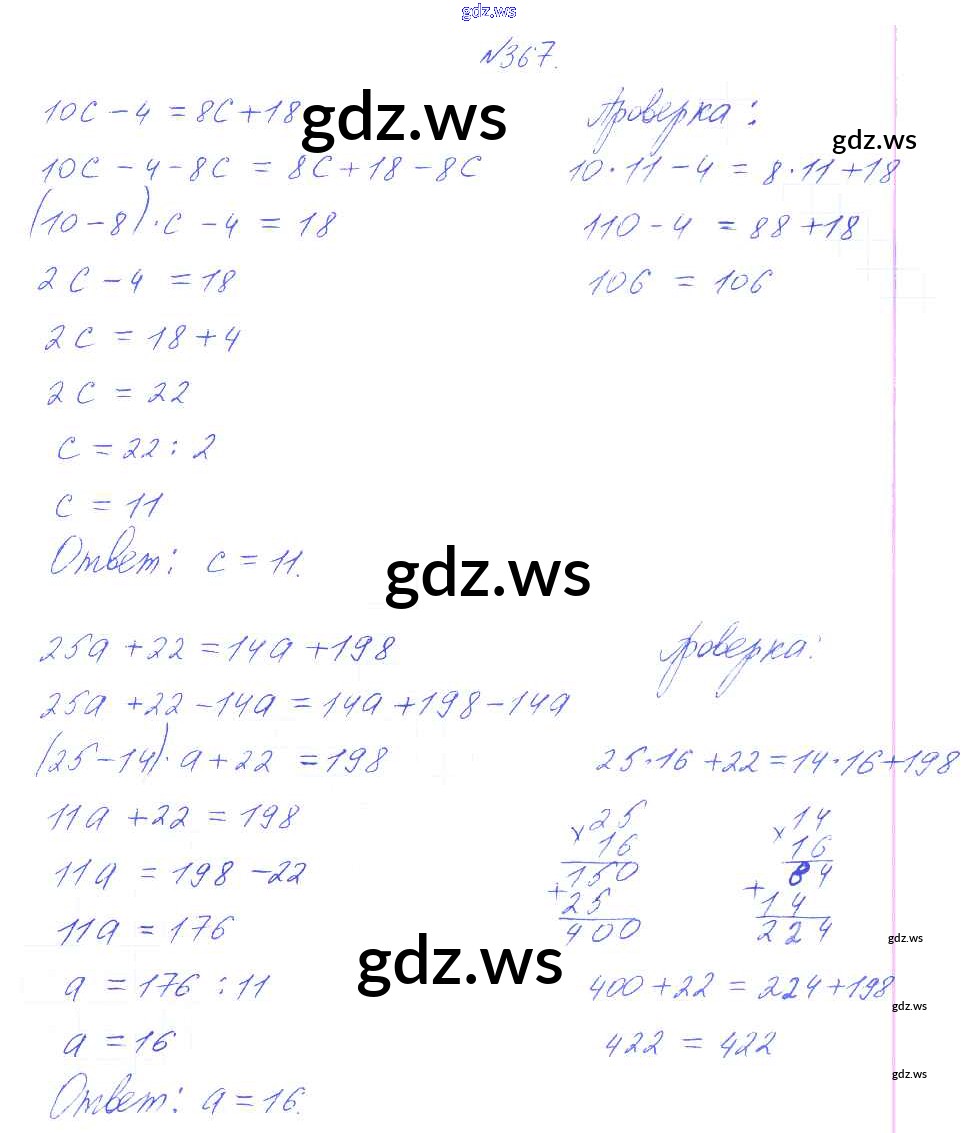 gdz.ws
№367.
10c - 4 = 8c + 18
10c - 4 - 8c = 8c + 18 - 8c
(10 - 8) · c - 4 = 18
2c - 4 = 18
2c = 18 + 4
2c = 22
c = 22 : 2
c = 11
Ответ: c = 11.
Проверка:
10 · 11 - 4 = 8 · 11 + 18
110 - 4 = 88 + 18
106 = 106
gdz.ws
gdz.ws
gdz.ws
25a + 22 = 14a + 198
25a + 22 - 14a = 14a + 198 - 14a
(25 - 14) · a + 22 = 198
11a + 22 = 198
11a = 198 - 22
11a = 176
a = 176 : 11
a = 16
Ответ: a = 16.
Проверка:
25 · 16 + 22 = 14 · 16 + 198
25
× 16
150
+ 25
400
14
× 16
84
+ 14
224
400 + 22 = 224 + 198
422 = 422
gdz.ws
gdz.ws
gdz.ws
gdz.ws